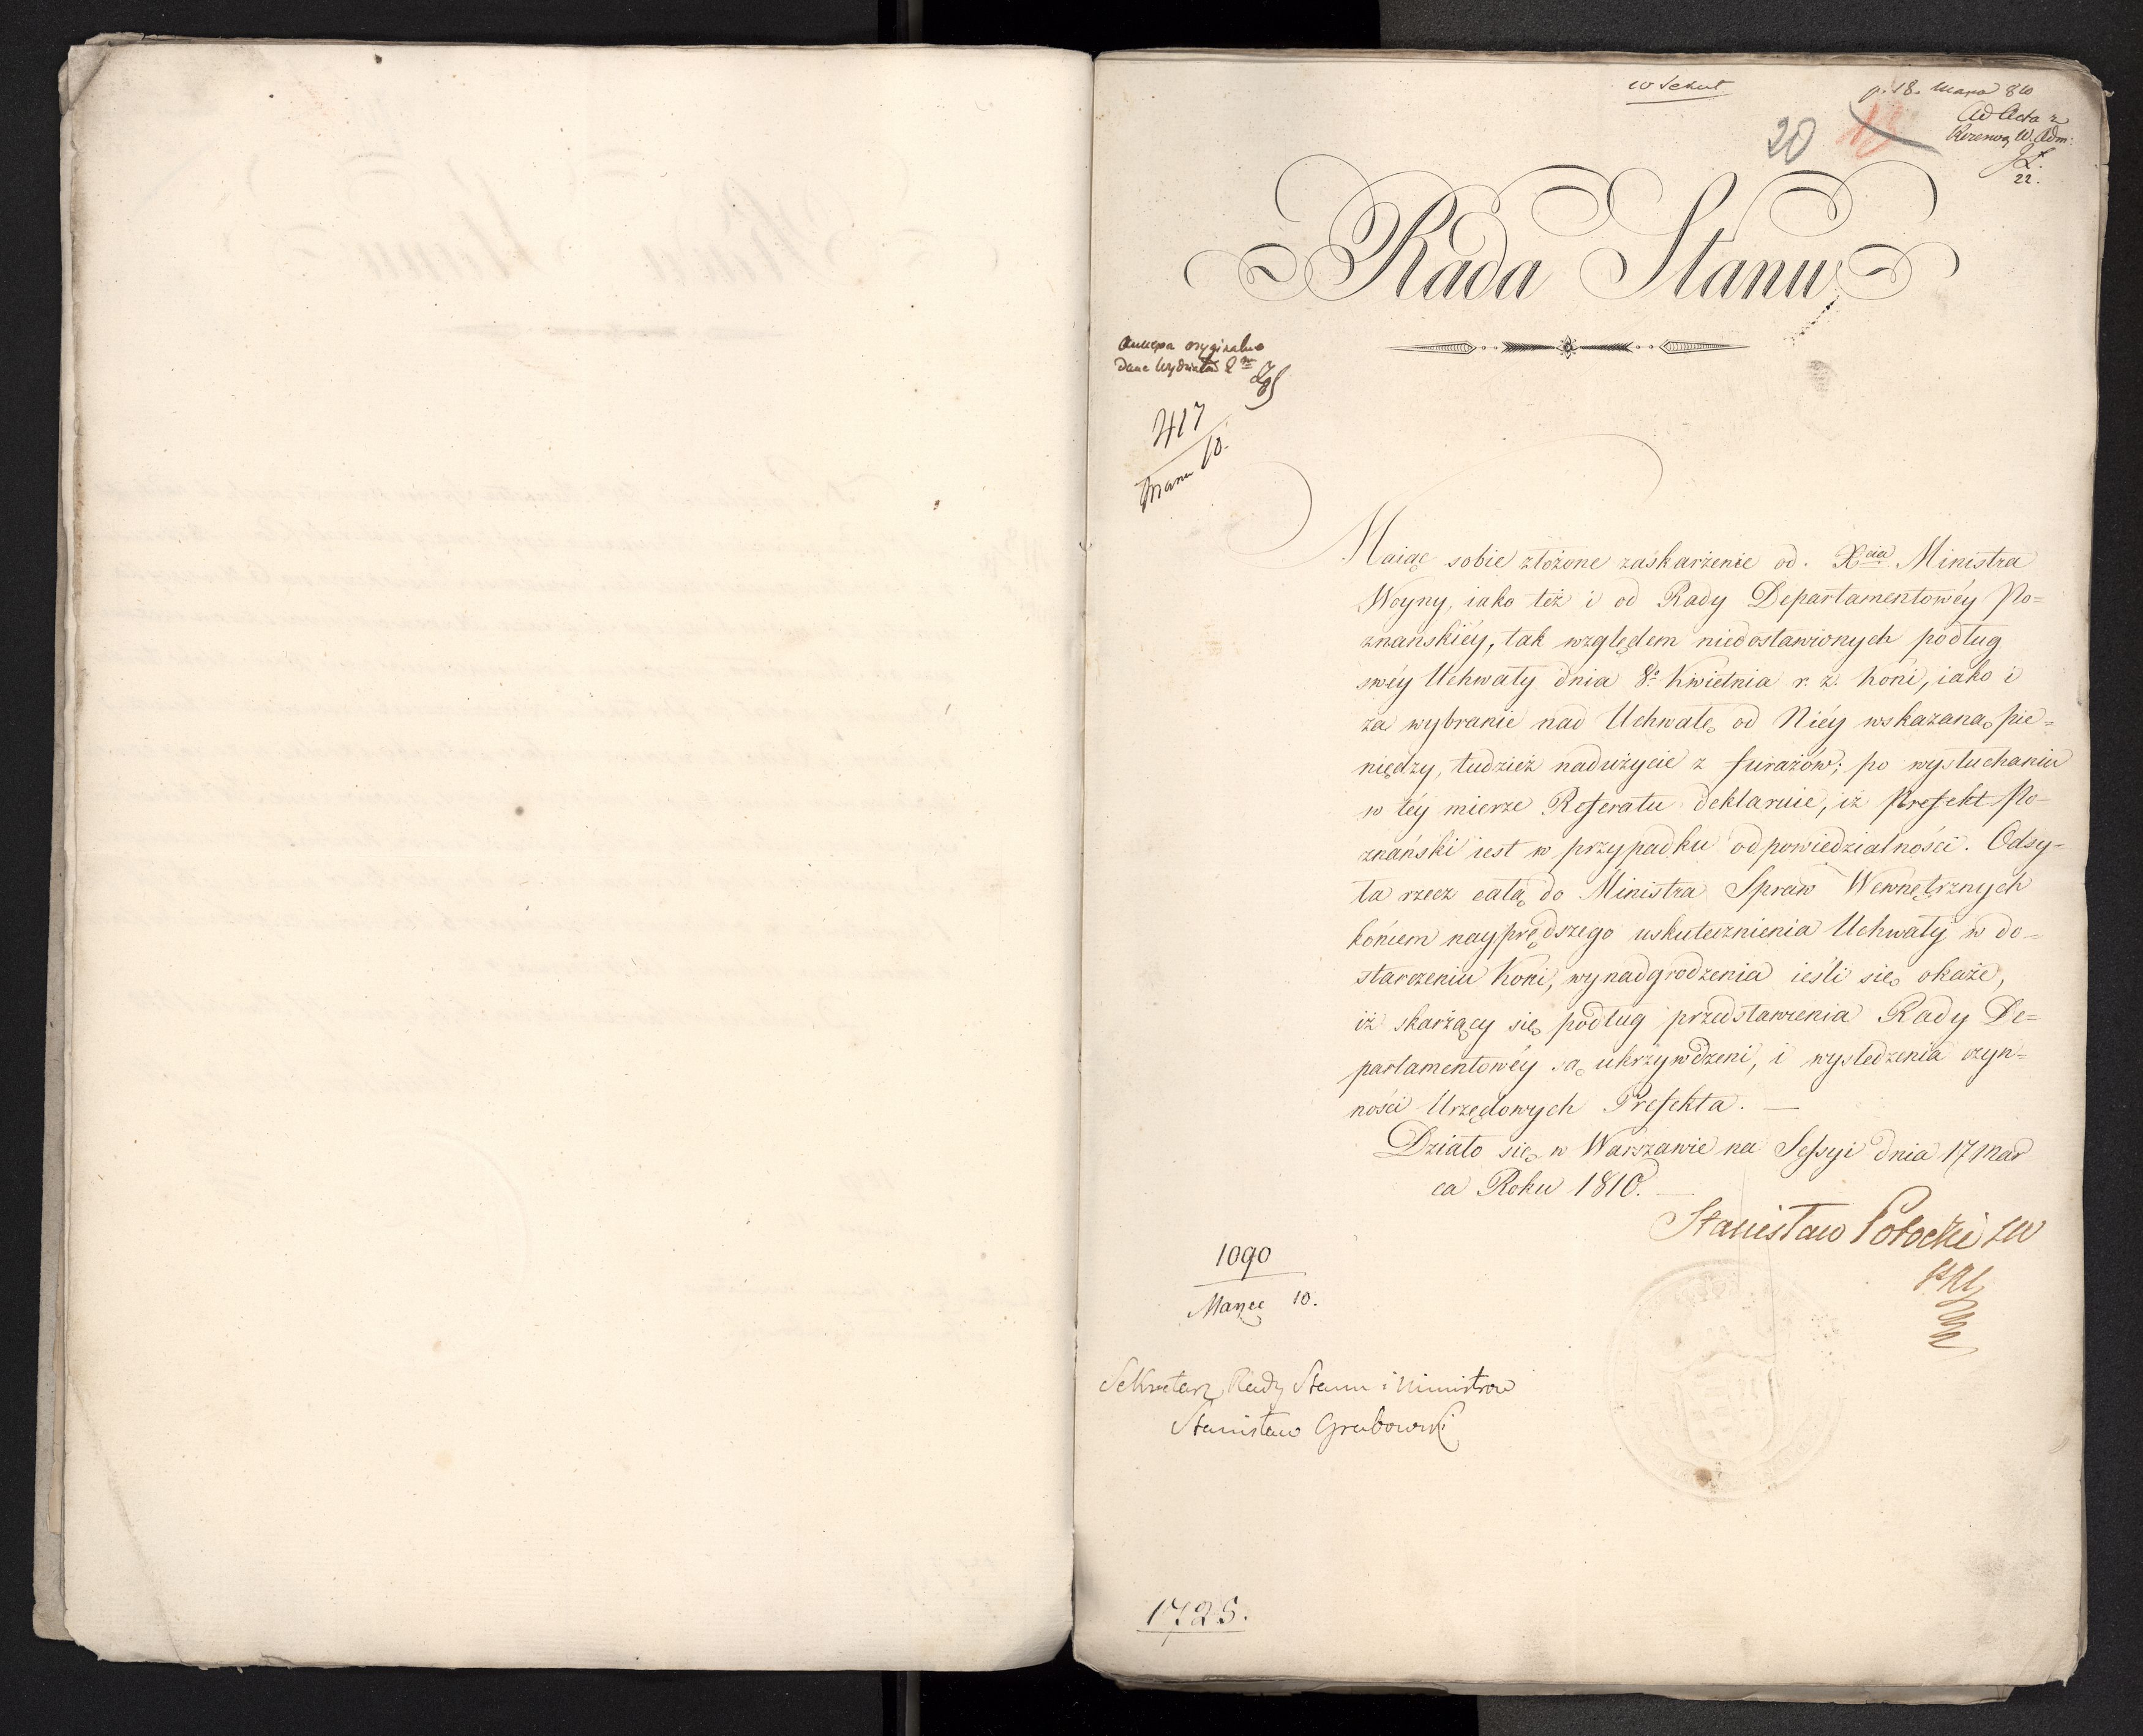 w Sekret
p. 18. Marca 810
Ad Acta z
Rezerwą W. Adm:
22.
20
18
Rada Stanu
Annexa oryginalne
dane Wydziałow
417
Marca 10.
Maiąc sobie złożone zaskarżenie od Xcia Ministra
Woyny, iako też i od Rady Departamentowéy Po=
znańskiéy, tak względem niedostawionych podług
swéy Uchwały dnia 8o Kwietnia r. z. Koni, iako i
za wybranie nad Uchwałę od Niéy wskazaną pie=
niędzy, tudzież nadużycie z furażów; po wysłuchaniu
w téy mierze Referatu deklaruie, iż Prefekt Po=
znański iest w przypadku odpowiedzialności. Odsy=
ła rzecz całą do Ministra Spraw Wewnętrznych
końcem nayprędszego uskutecznienia Uchwały w do=
starczeniu Koni, wynadgrodzenia ieśli się okaże,
iż skarżący się podług przedstawienia Rady De=
partamentowéy są ukrzywdzeni, i wyśledzenia czyn=
ności Urzędowych Prefekta. —
Działo się w Warszawie na Sessyi dnia 17 Mar
ca Roku 1810. —
Stanisław Potocki
1090
Marzec 10.
Sekretarz Rady Stanu i Ministrow
Stanisław Grabowski
1725.